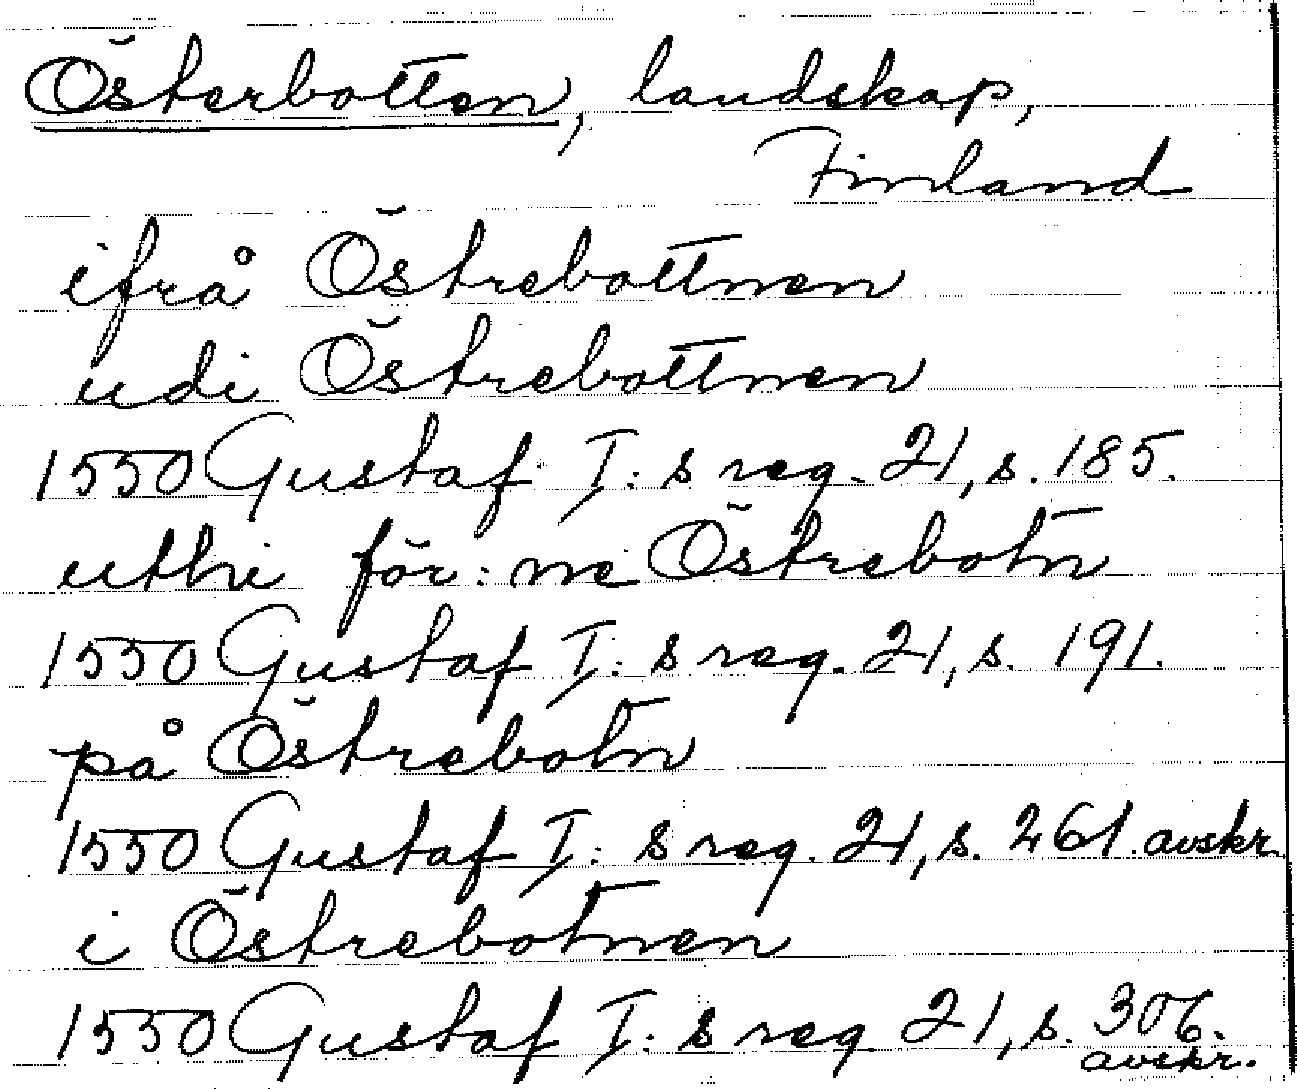 Österbotten, landskap,
Finland
ifrå Östrebottnen
udi Östrebottnen
1550 Gustaf I:s reg. 21, s. 185.
uthi för:ne Östrebotn
1550 Gustaf I:s reg. 21, s. 191.
på Östrebotn
1550 Gustaf I:s reg. 21, s. 261 avskr.
i Östrebotnen
1550 Gustaf I:s reg 21, s. 306.
avskr.